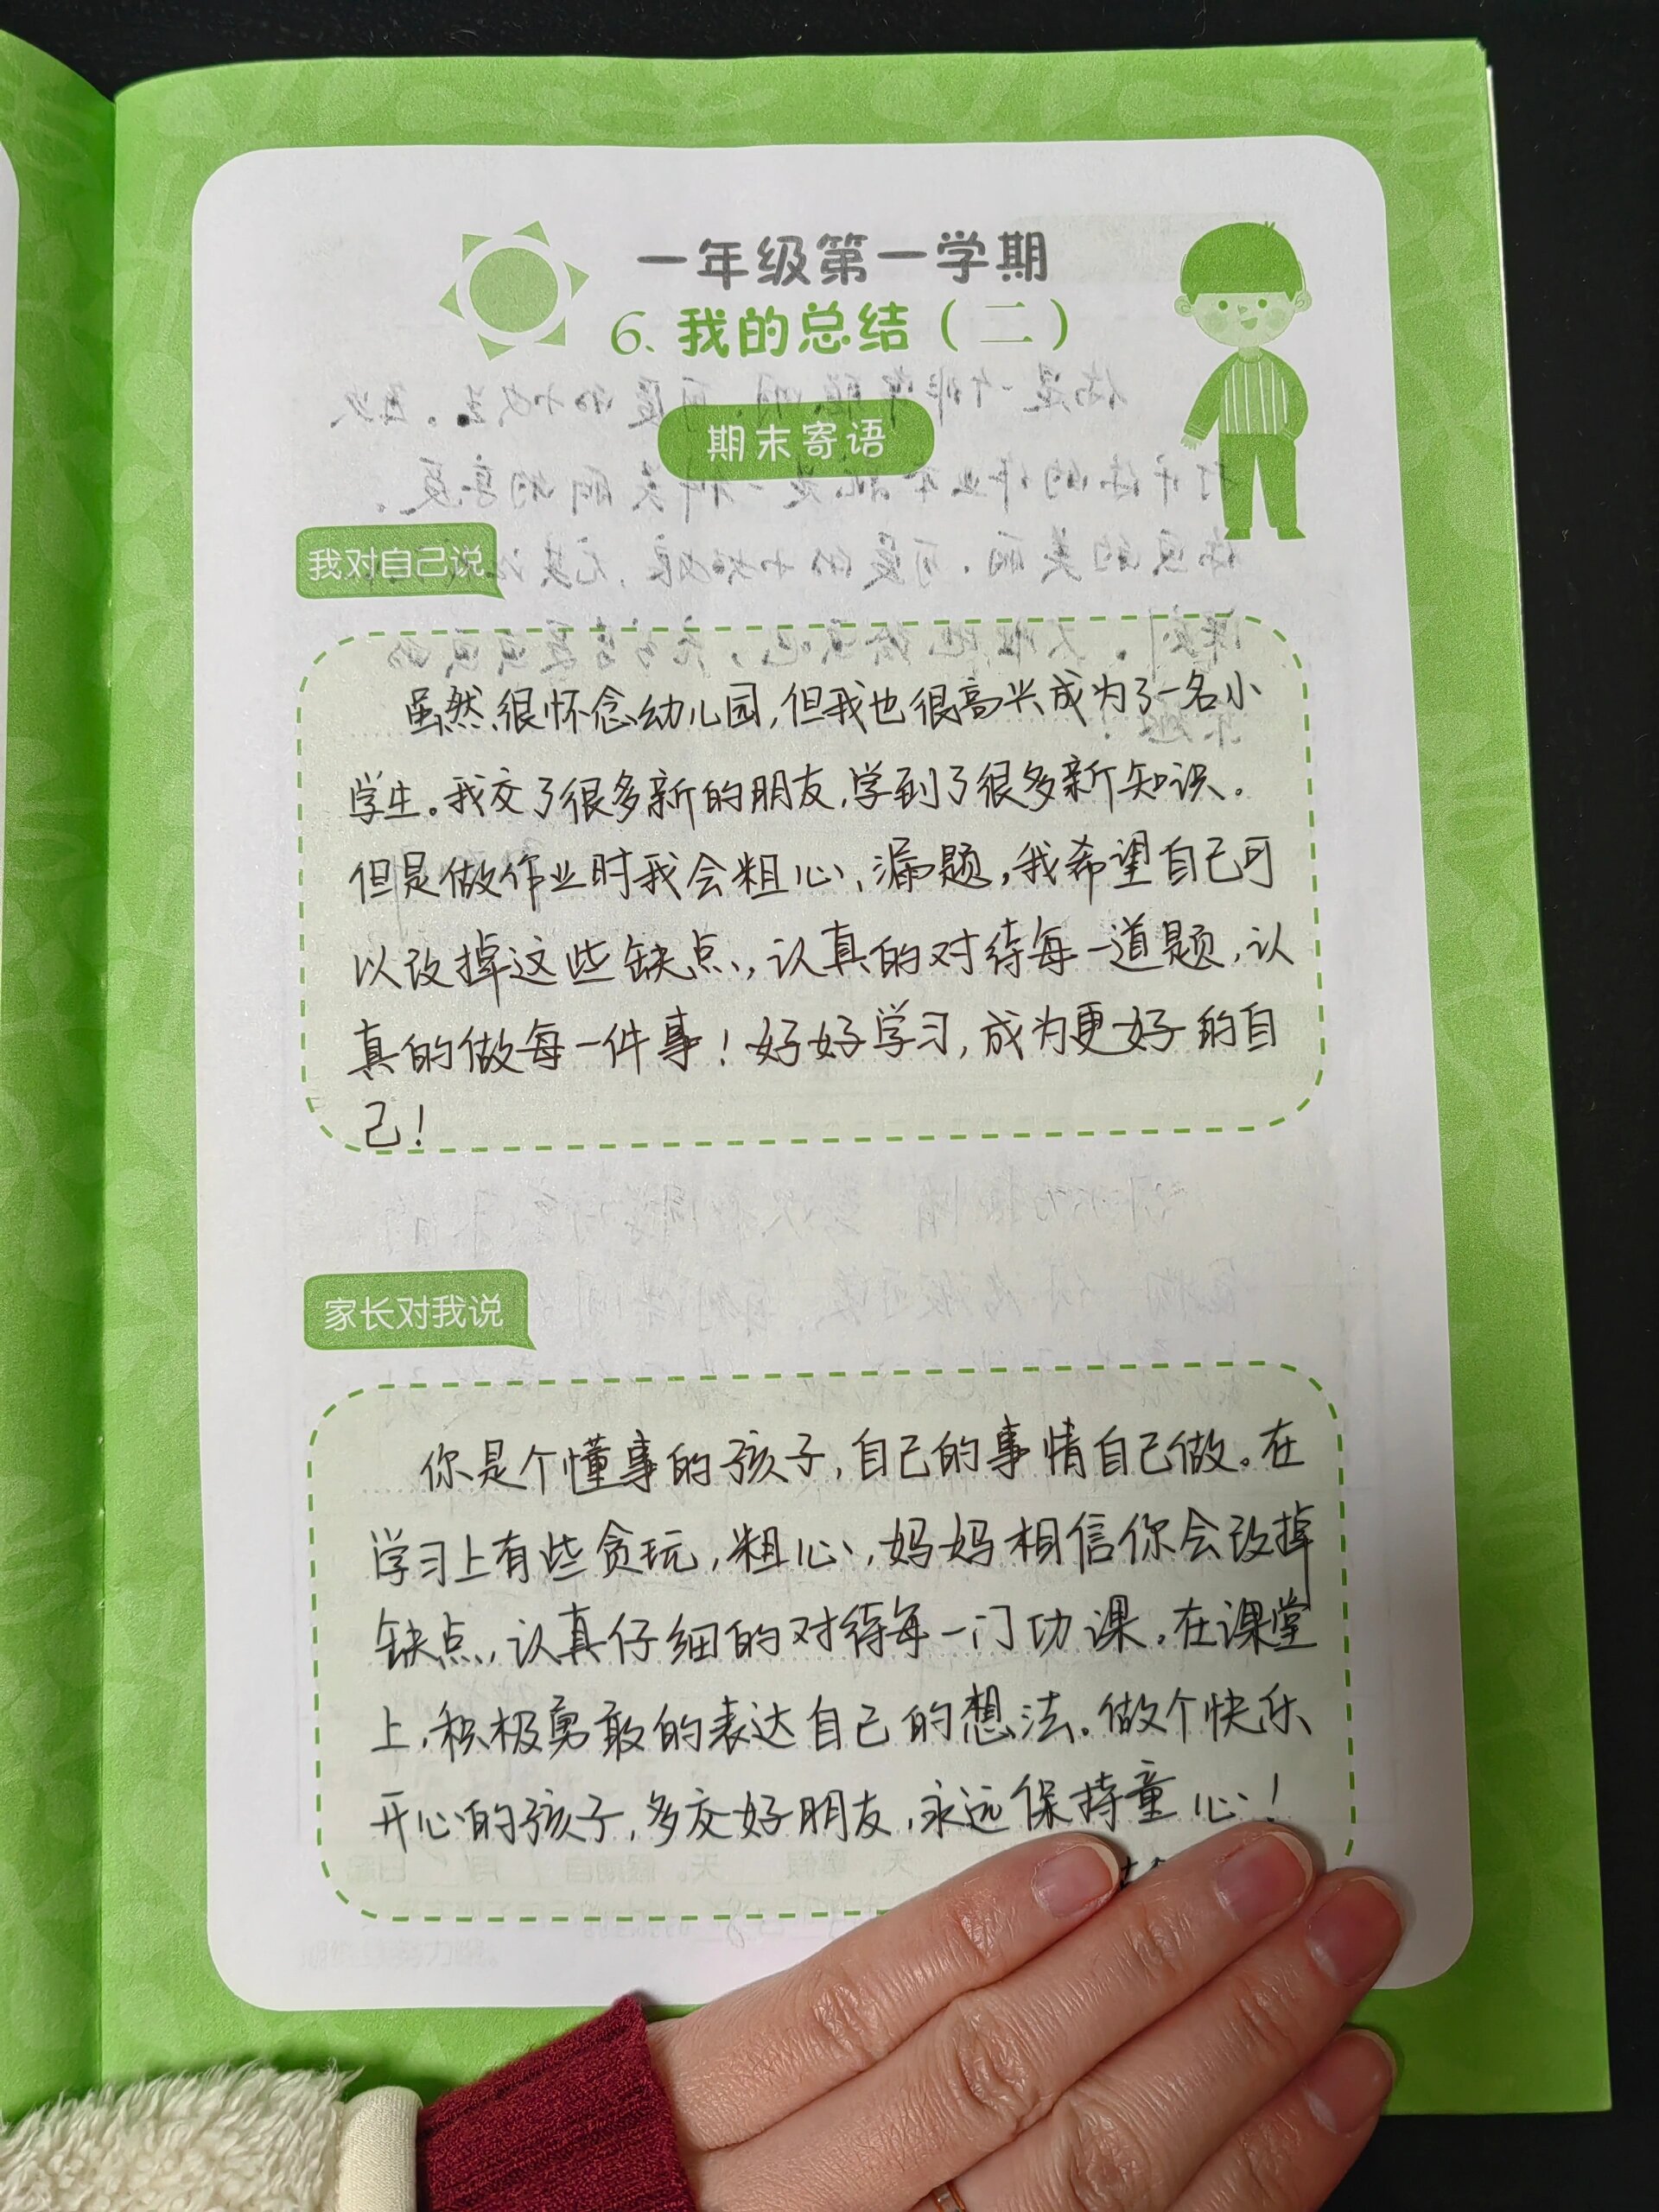 一年级第一学期
6. 我的总结（二）
期末寄语
我对自己说
虽然很怀念幼儿园,但我也很高兴成为了一名小
学生。我交了很多新的朋友,学到了很多新知识。
但是做作业时我会粗心、漏题,我希望自己可
以改掉这些缺点,认真的对待每一道题,认
真的做每一件事！好好学习,成为更好的自
己！
家长对我说
你是个懂事的孩子,自己的事情自己做。在
学习上有些贪玩,粗心,妈妈相信你会改掉
缺点,认真仔细的对待每一门功课。在课堂
上,积极勇敢的表达自己的想法。做个快乐
开心的孩子,多交好朋友,永远保持童心！